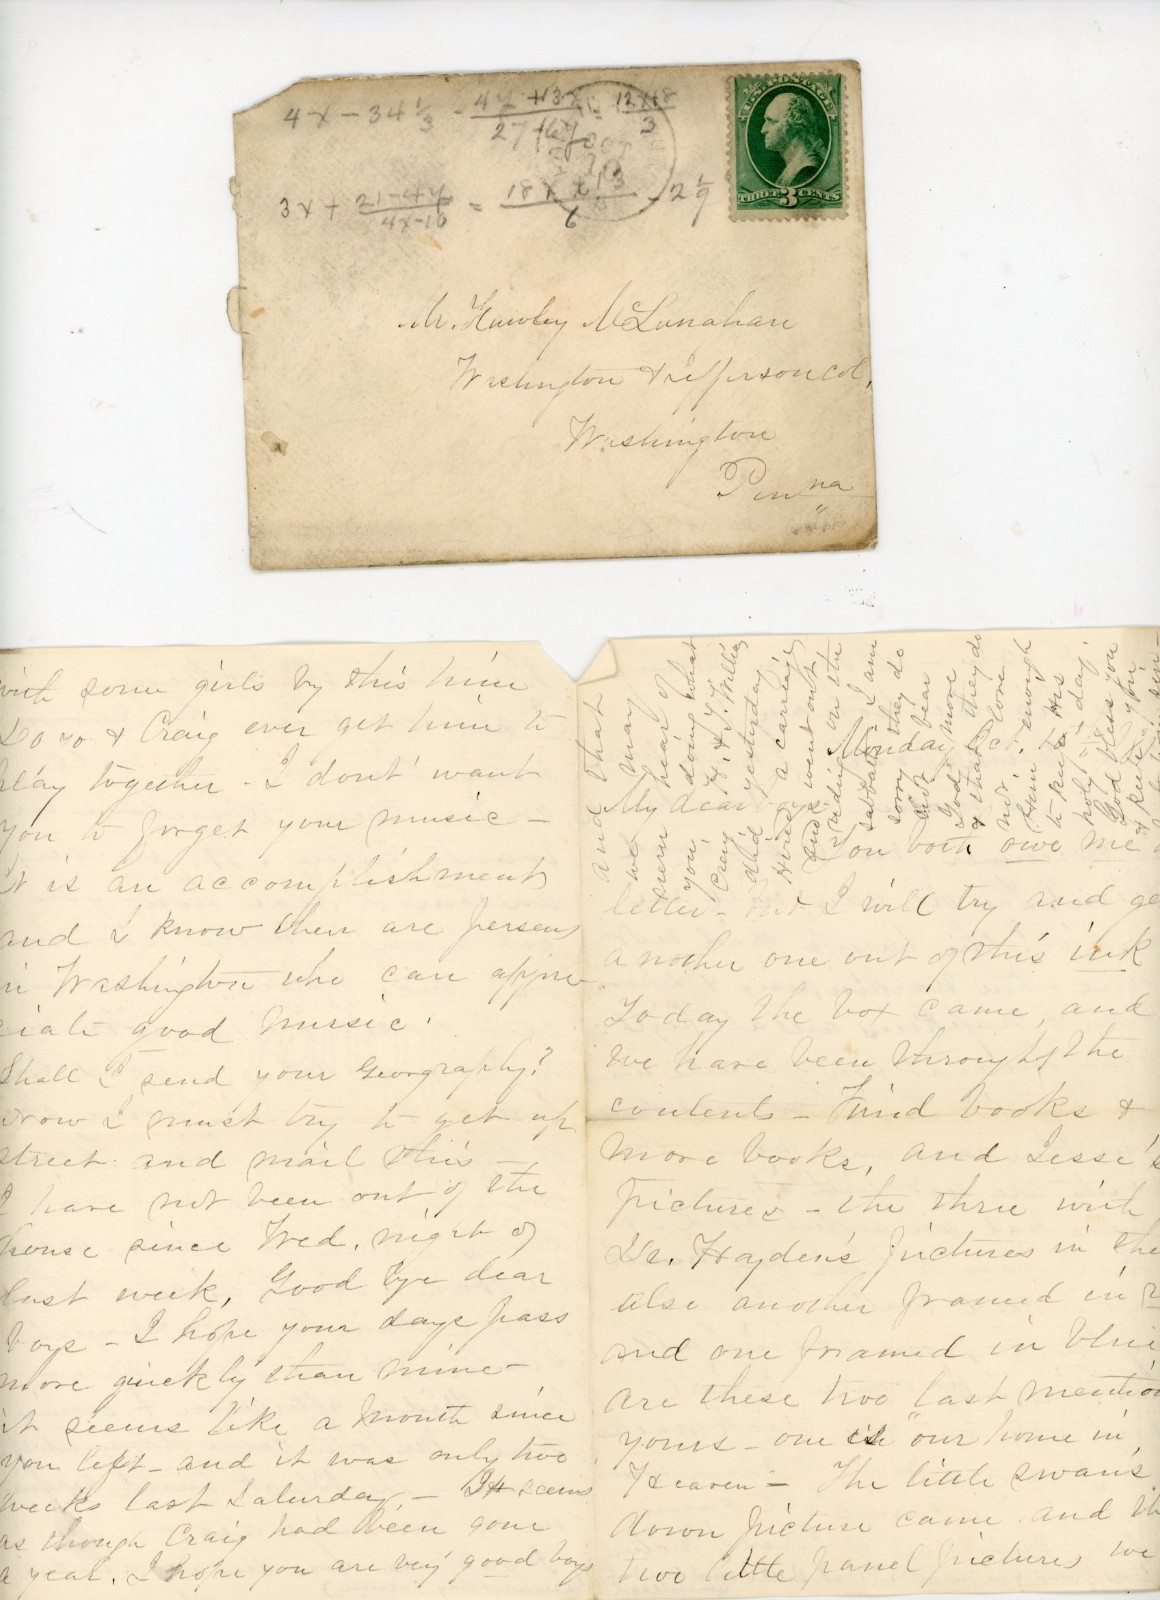 4x - 34 1/3 - 4y + 13 = 12x+8
27 3
3x + 21-4y = 18x + 13 - 2 1/9
4x-16 6
U.S. POSTAGE
THREE 3 CENTS
Mr. Hawley McLanahan
Washington & Jefferson Col,
Washington
Penna
with some girls by this time
Do yo & Craig ever get time to
play together - I dont' want
you to forget your music -
it is an accomplishment
and I know there are persons
in Washington who can appre
ciate good music.
Shall I send your Geography?
Now I must try to get up
street and mail this -
I have not been out of the
house since Wed. night of
last week, Good bye dear
boys - I hope your days pass
more quickly than mine
it seems like a month since
you left - and it was only two
weeks last Saturday. - It seems
as though Craig had been gone
a year. I hope you are very good boys
and that
we may
hear of
you, doing what
Craig & J. Willie
did yesterday
Hired a carriage
and went out
riding on the
sabbath I am
sorry they do
not bear
God more
& that they do
not love
Him enough
to keep His
holy day.
God bless you
& keep you
Monday Oct.
My dear boys
You both owe me a
letter - but I will try and ge
another one out of this ink
Today the box came, and
we have been through the
contents - Find books &
more books, and Jesse's
pictures - the three with
Dr. Hayden's pictures in the
also another framed in
and one framed in blue
are these two last mention
yours - one is "our home in
Heaven - The little swan's
down picture came and th
two little panel pictures we